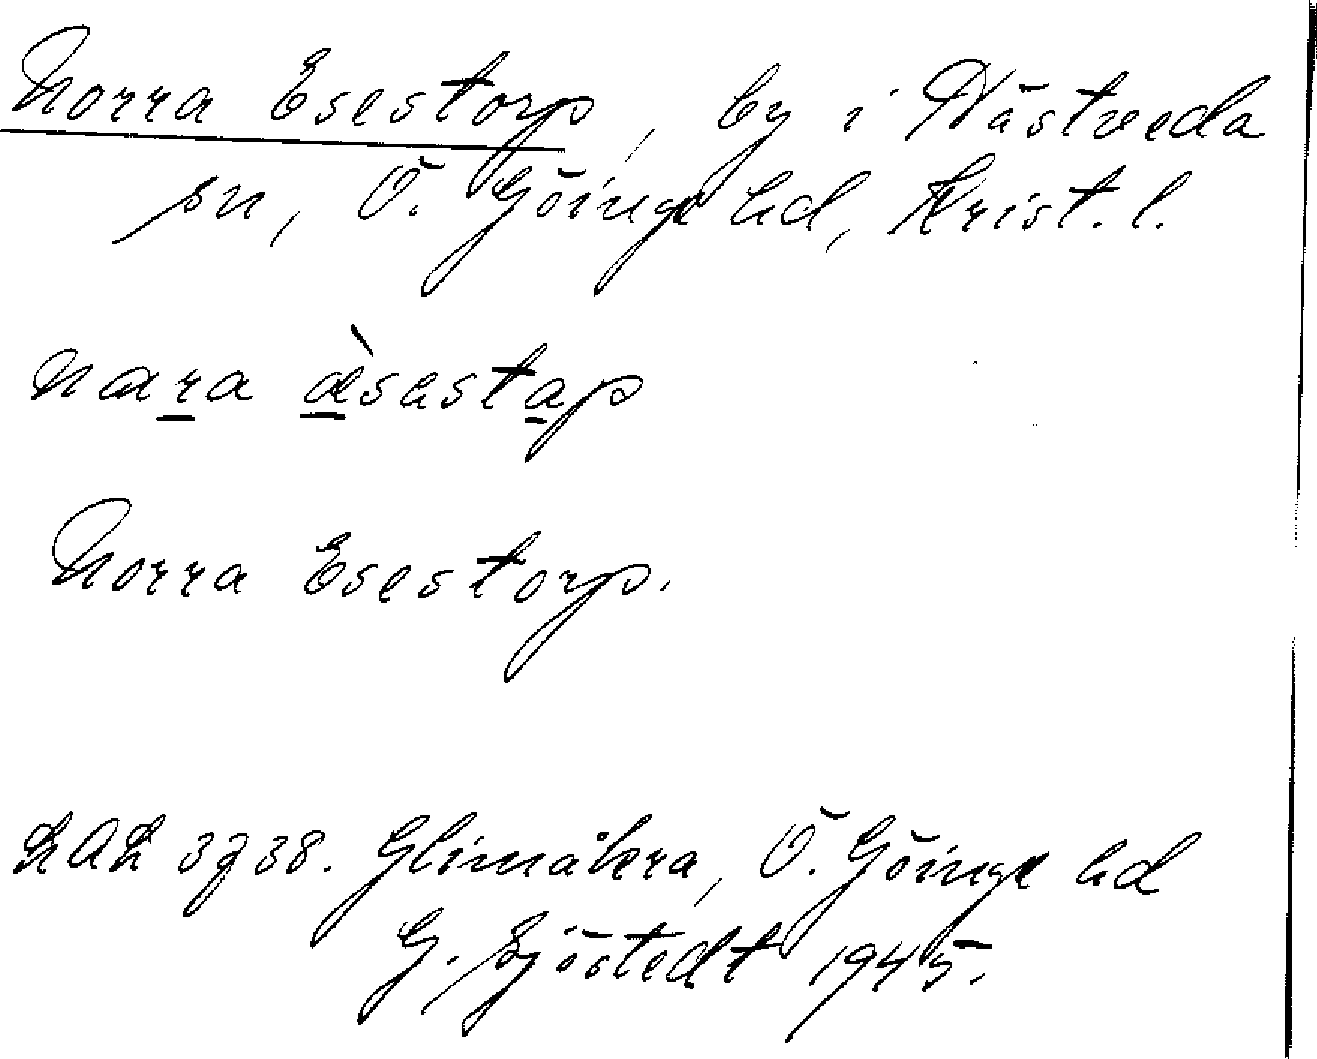 Norra Esestorp, by i Hästveda
sn, Ö. Göinge hd, Krist. l.
nara æ̀sestap
Norra Esestorp.
LAL 3738. Glimåkra, Ö. Göinge hd
G. Sjöstedt 1945.